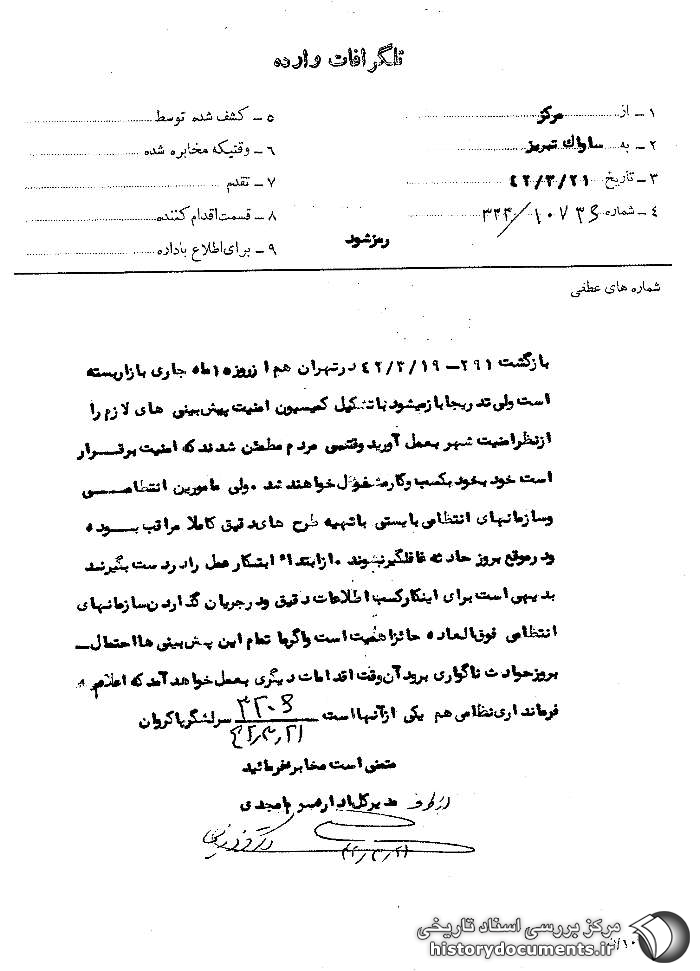 تلگرافات وارده
۱ ـ از مرکز
۲ ـ به ساواك تبریز
۳ ـ تاریخ ۴۲/۳/۲۱
۴ ـ شماره ۳۲۴/۱۰۷۳۶
۵ ـ کشف شده توسط
۶ ـ وقتیکه مخابره شده
۷ ـ تقدم
۸ ـ قسمت اقدام کننده
۹ ـ برای اطلاع باداره
رمز شود
شماره های عطفی
بازگشت ۲۹۱ ـ ۴۲/۳/۱۹ در تهران هم از روز ۱۵ ماه جاری بازار بسته
است ولی تدریجا باز میشود با تشکیل کمیسیون امنیت پیش بینی های لازم را
از نظر امنیت شهر بعمل آورید وقتی مردم مطمئن شدند که امنیت برقرار
است خود بخود بکسب و کار مشغول خواهند شد . ولی مامورین انتظامی
و سازمانهای انتظامی بایستی باتهیه طرح های دقیق کاملا مراقب بوده
و در موقع بروز حادثه غافلگیر نشوند . از ابتداء ابتکار عمل را در دست بگیرند
بدیهی است برای اینکار کسب اطلاعات دقیق و در جریان گذاردن سازمانهای
انتظامی فوق العاده حائز اهمیت است و اگر با تمام این پیش بینی ها احتمال ـ
بروز حوادث ناگواری برود آن وقت اقدامات دیگری بعمل خواهد آمد که اعلام
فرمانداری نظامی هم یکی از آنها است ۳۲۰۶ سرلشگر پاکروان
۴۲/۳/۲۱
متمنی است مخابره فرمائید
از طرف مدیر کل اداره سوم امجدی
۴۲/۳/۲۱
مرکز بررسی اسناد تاریخی
historydocuments.ir